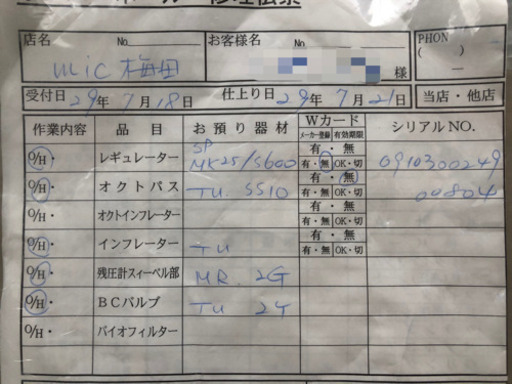 店名 No. お客様名 No. PHON
mic 梅田 様 ( )
受付日 29年 7月18日 仕上り日 29年 7月21日 当店・他店
作業内容 品目 お預り器材 Wカード シリアルNO.
メーカー登録 有効期限
O/H・ レギュレーター SP MK25/S600 有・無 有・無 OK・切 0910300249
O/H・ オクトパス TU. SS10 有・無 有・無 OK・切 00804
O/H・ オクトインフレーター 有・無 有・無 OK・切
O/H・ インフレーター TU 有・無 有・無 OK・切
O/H・ 残圧計スィーベル部 MR. 2G
O/H・ BCバルブ TU 2ケ
O/H・ バイオフィルター